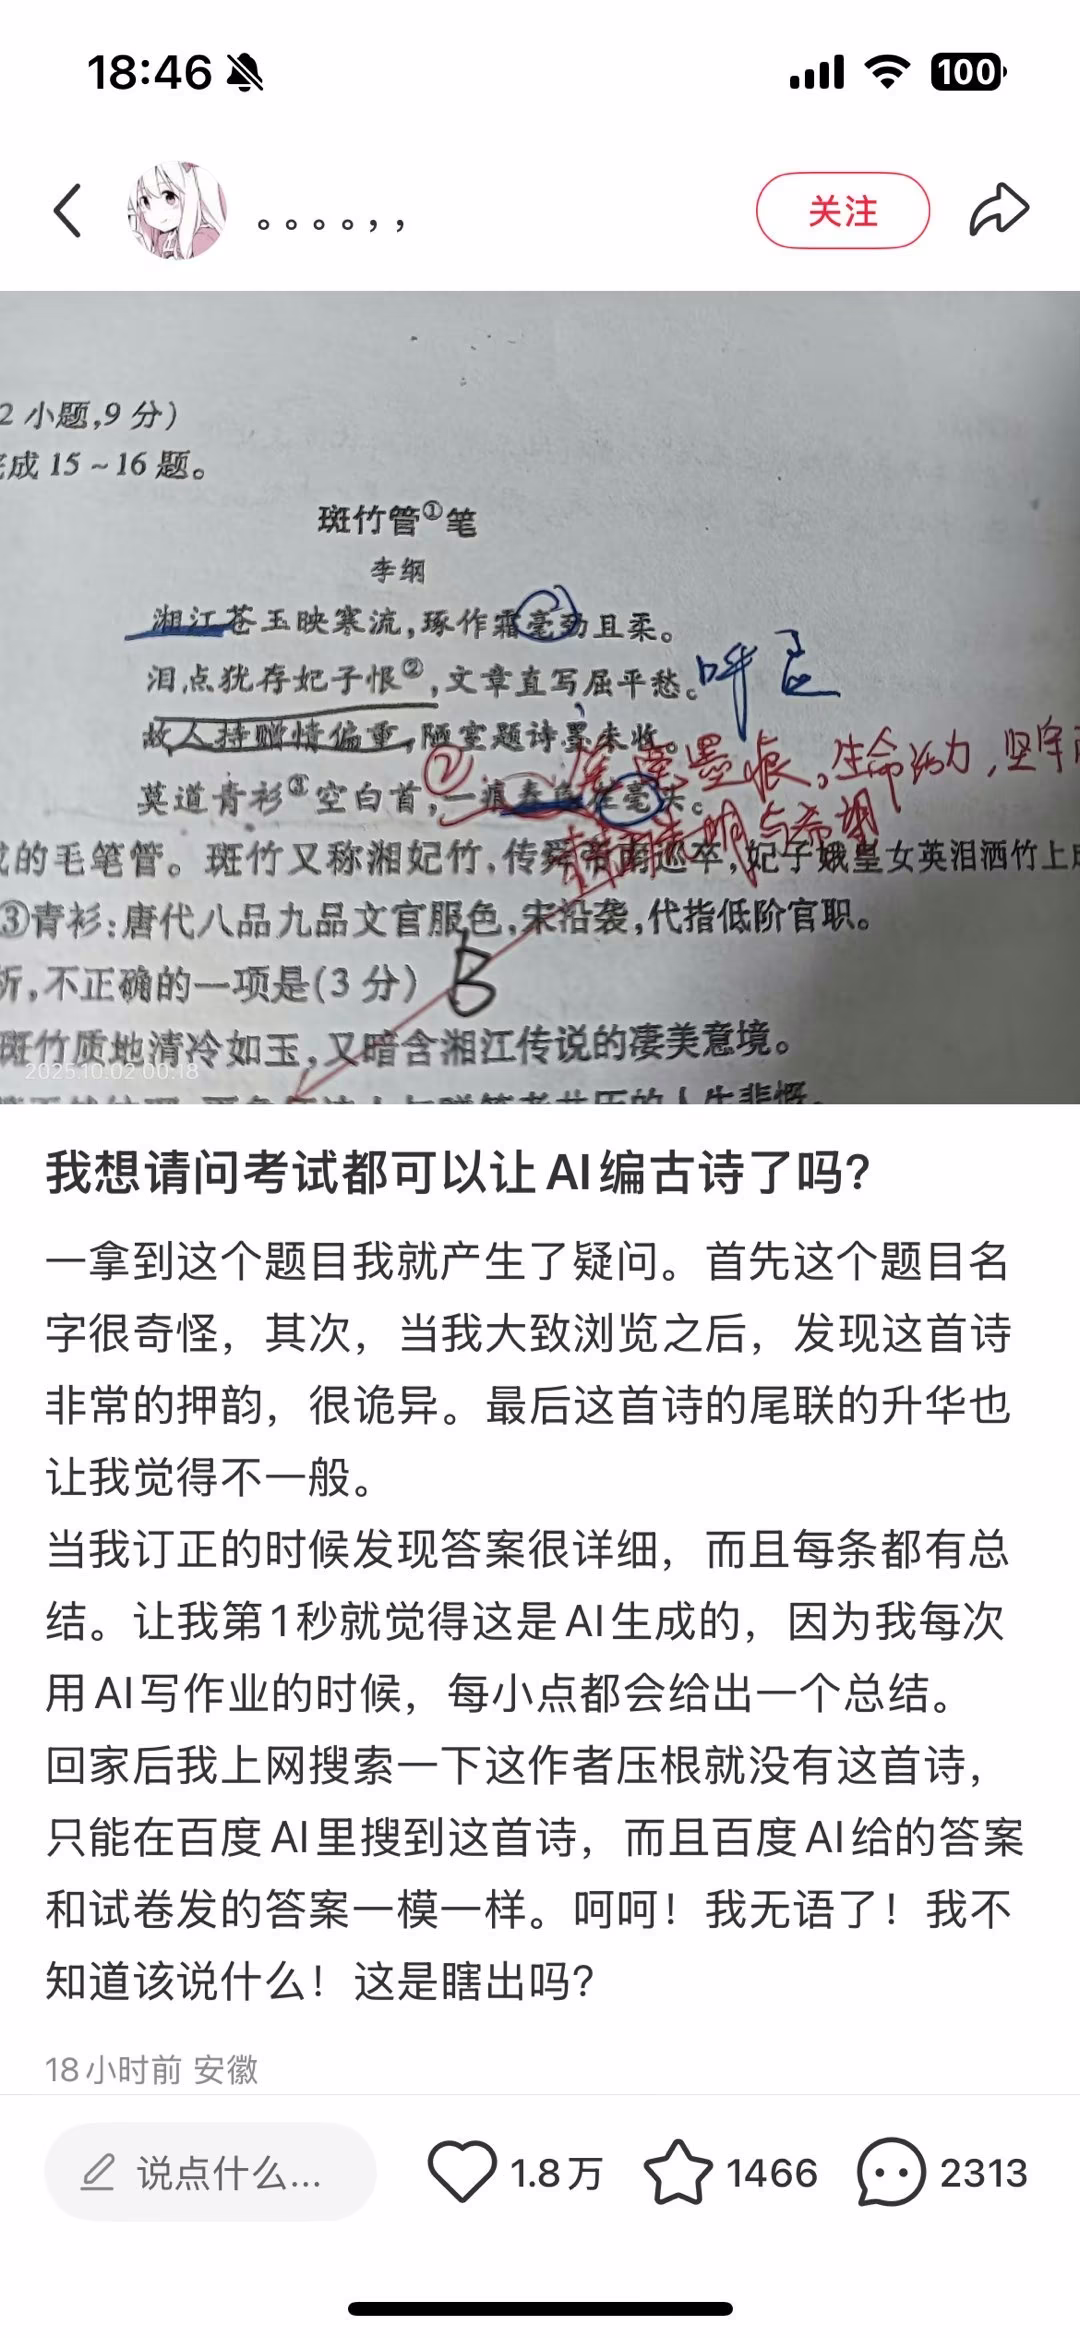 18:46
100
。。。。，，
关注
2 小题,9 分）
完成 15～16 题。
斑竹管①笔
李纲
湘江苍玉映寒流,琢作霜毫劲且柔。
泪点犹存妃子恨②,文章直写屈平愁。
呼应
故人持赠情偏重,陋室题诗墨未收。
② 墨痕。生命活力,坚守
莫道青衫③空白首,一痕春 毫
明与希望
的毛笔管。斑竹又称湘妃竹,传舜帝南巡卒,妃子娥皇女英泪洒竹上
③青衫:唐代八品九品文官服色,宋沿袭,代指低阶官职。
析,不正确的一项是(3 分)
B
斑竹质地清冷如玉,又暗含湘江传说的凄美意境。
2025.10.02 00:18
我想请问考试都可以让AI编古诗了吗？
一拿到这个题目我就产生了疑问。首先这个题目名
字很奇怪，其次，当我大致浏览之后，发现这首诗
非常的押韵，很诡异。最后这首诗的尾联的升华也
让我觉得不一般。
当我订正的时候发现答案很详细，而且每条都有总
结。让我第1秒就觉得这是AI生成的，因为我每次
用AI写作业的时候，每小点都会给出一个总结。
回家后我上网搜索一下这作者压根就没有这首诗，
只能在百度AI里搜到这首诗，而且百度AI给的答案
和试卷发的答案一模一样。呵呵！我无语了！我不
知道该说什么！这是瞎出吗？
18小时前 安徽
说点什么...
1.8万
1466
2313